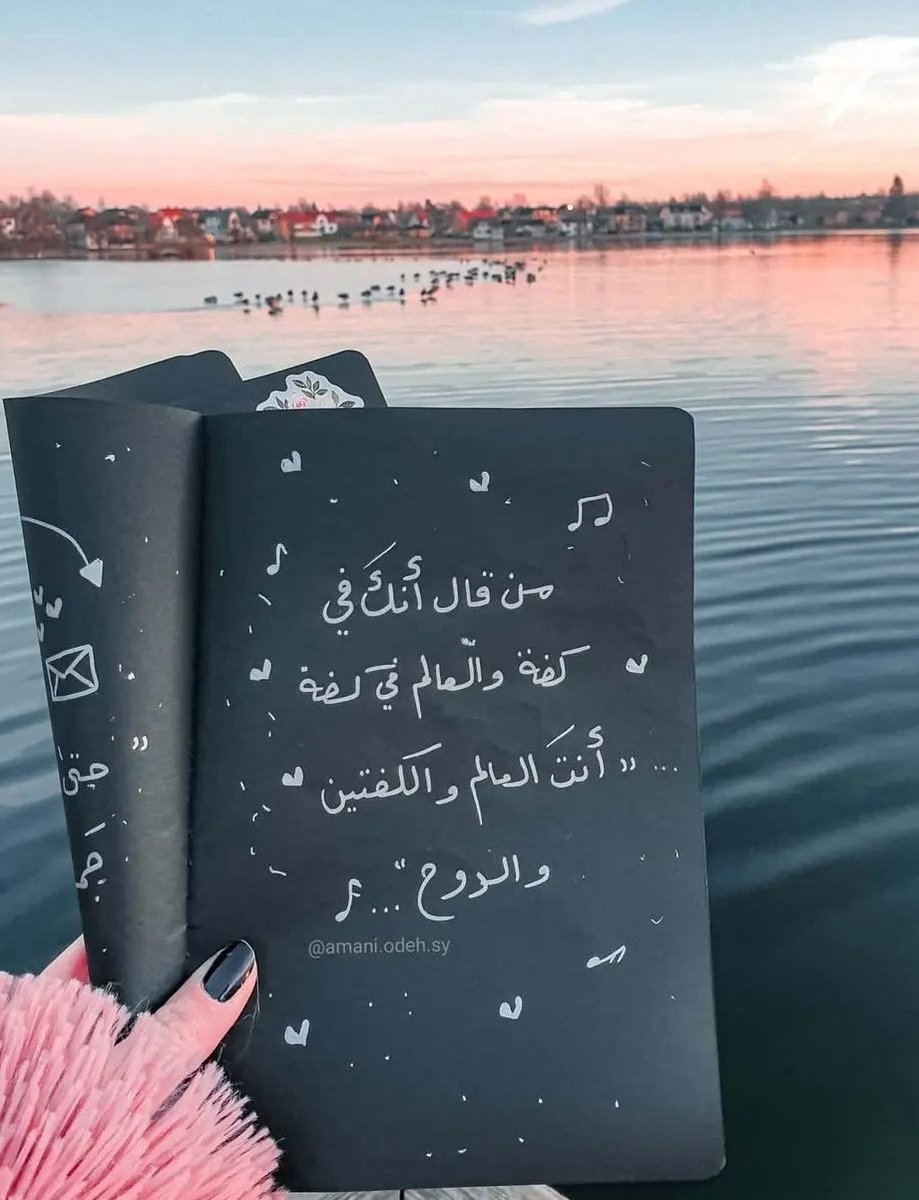 من قال أنكَ في
كفة والعالم في كفة
... " أنتَ العالم والكفتين
والروح " ...
@amani.odeh.sy
"
حتى